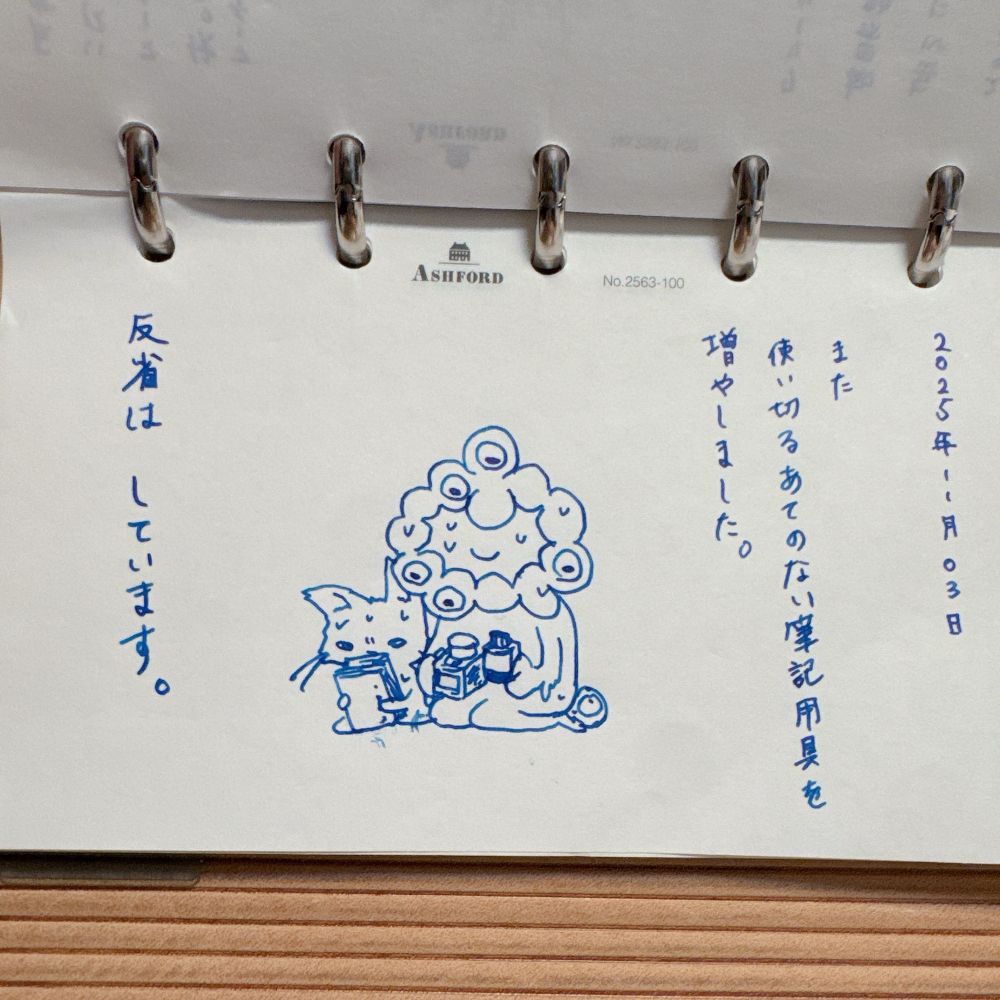 ASHFORD
No.2563-100
2025年11月03日
また
使い切るあてのない筆記用具を
増やしました。
反省は しています。